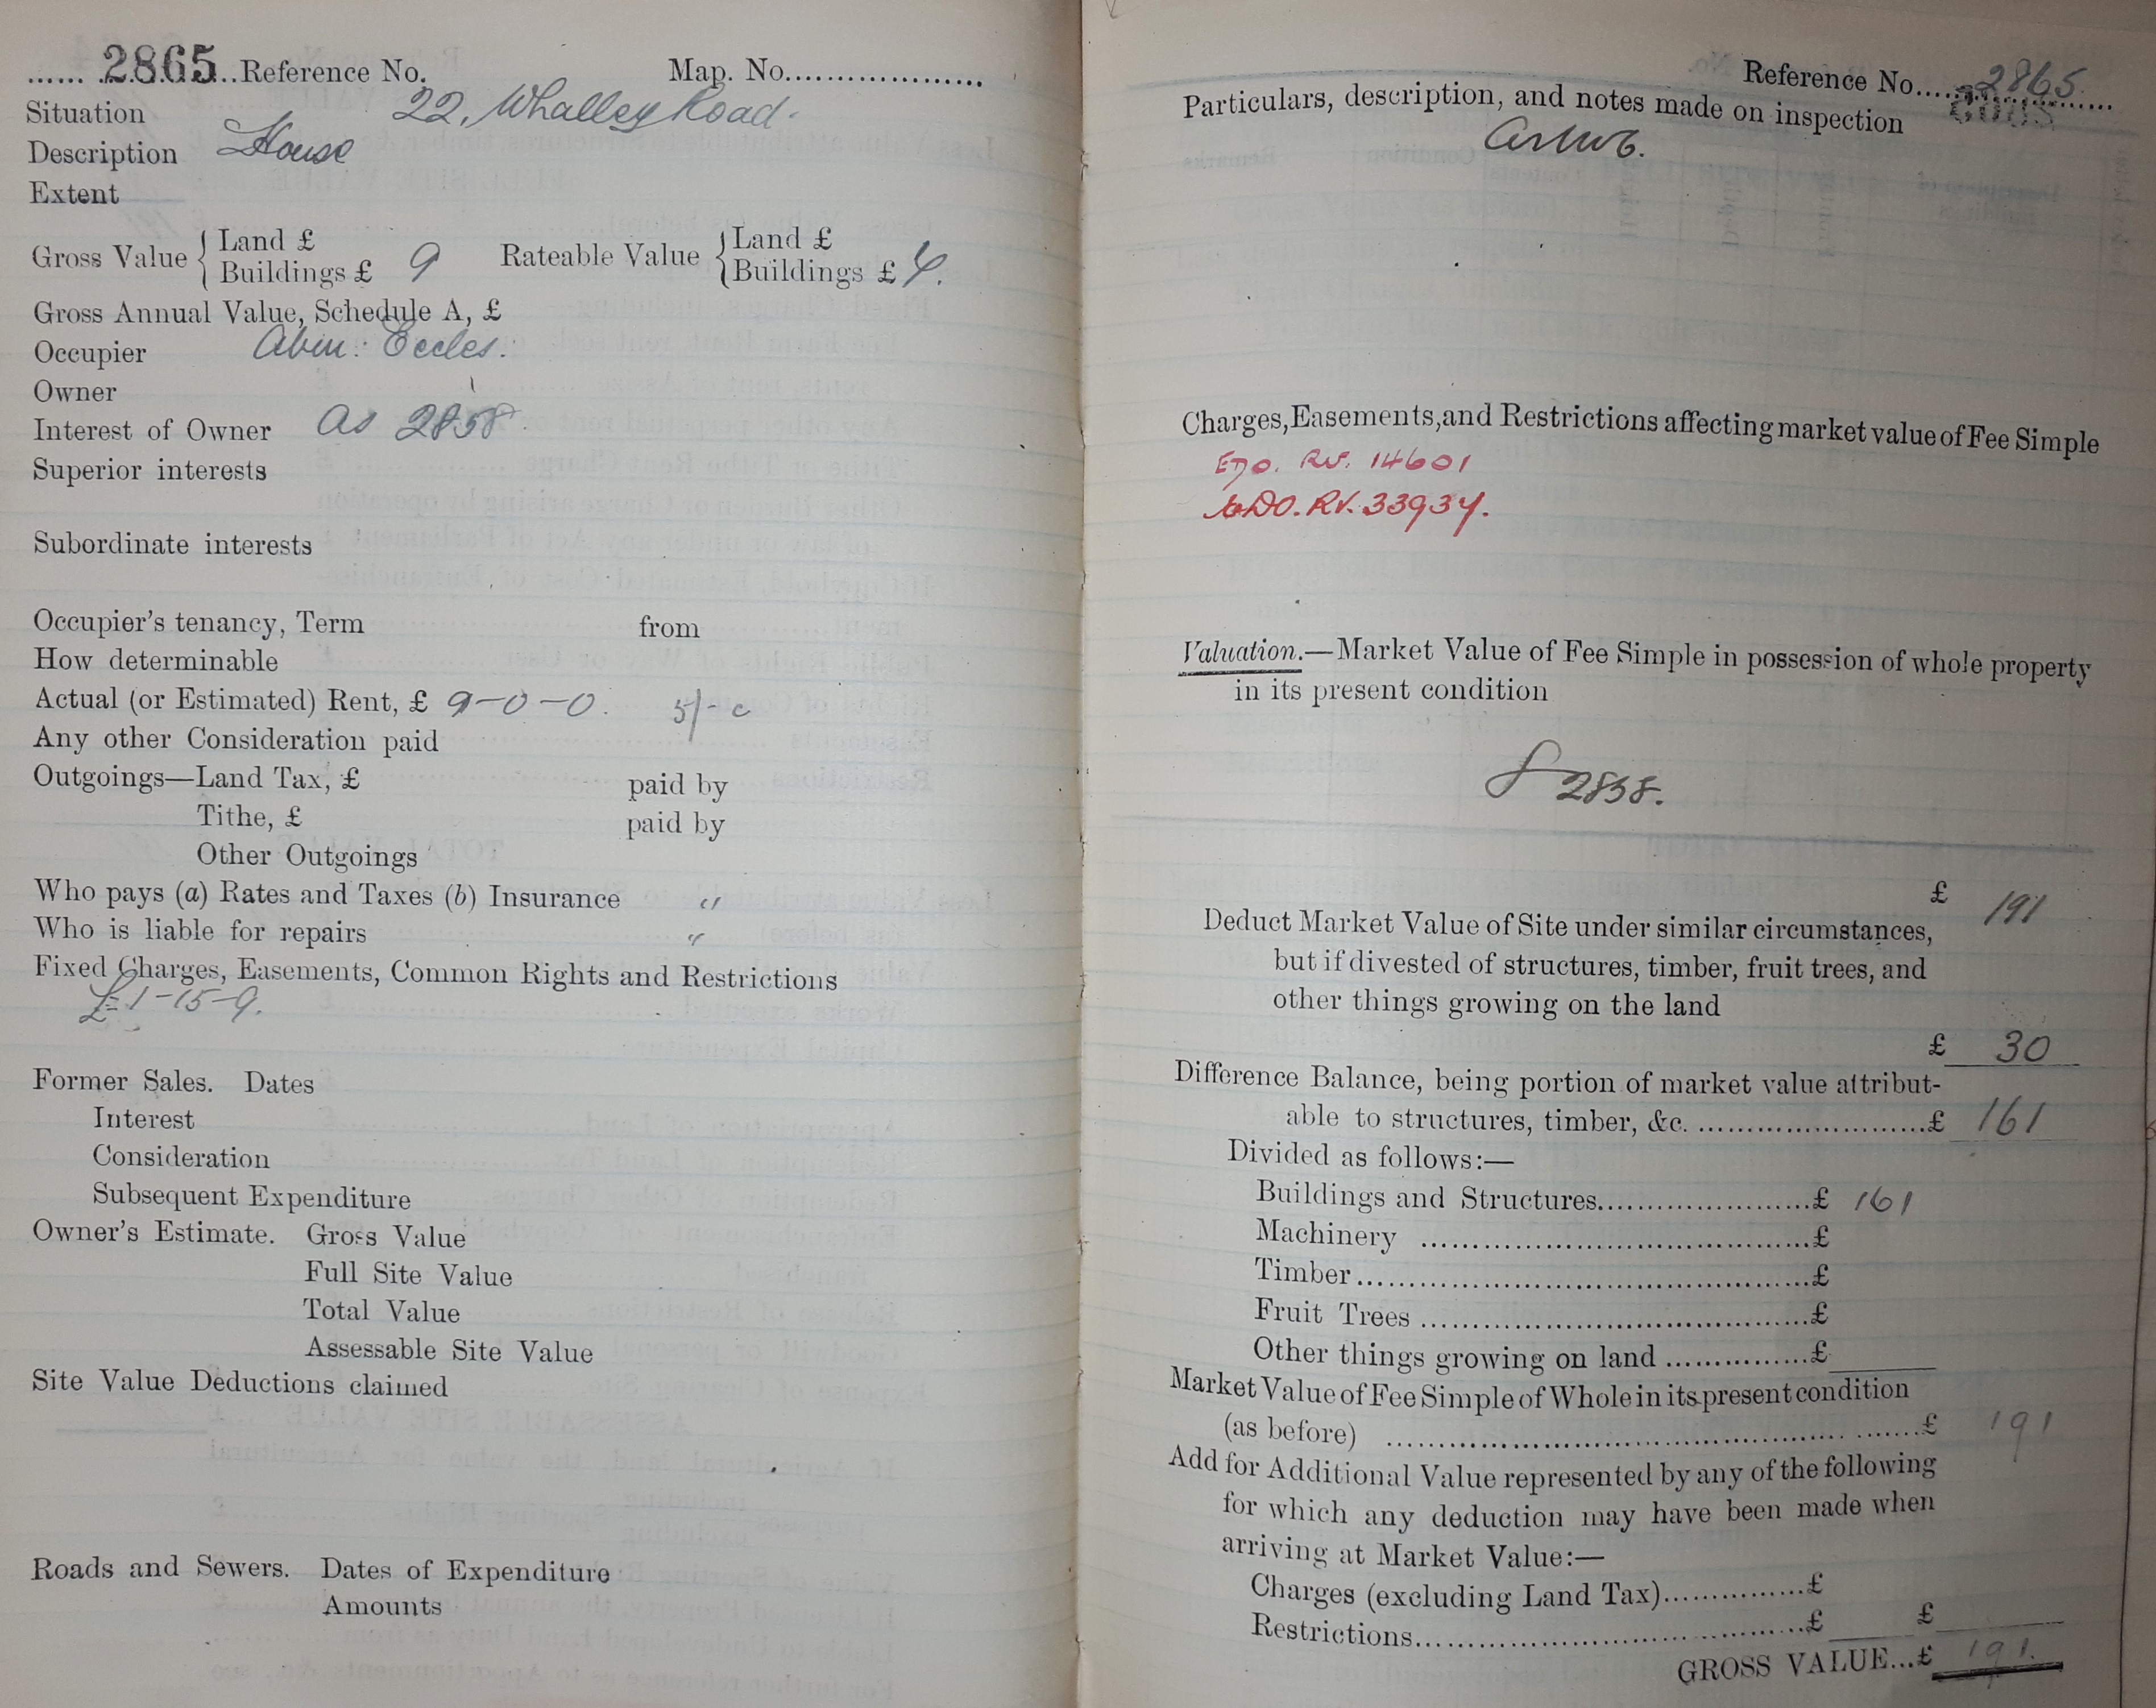 ...... 2865 ..Reference No. Map. No....................
Situation 22, Whalley Road.
Description House
Extent
Gross Value { Land £
Buildings £ 9 Rateable Value { Land £
Buildings £
Gross Annual Value, Schedule A, £
Occupier Eccles.
Owner
Interest of Owner As 2858
Superior interests
Subordinate interests
Occupier's tenancy, Term from
How determinable
Actual (or Estimated) Rent, £ 9-0-0. 5/- c
Any other Consideration paid
Outgoings—Land Tax, £ paid by
Tithe, £ paid by
Other Outgoings
Who pays (a) Rates and Taxes (b) Insurance "
Who is liable for repairs "
Fixed Charges, Easements, Common Rights and Restrictions
£1-15-9.
Former Sales. Dates
Interest
Consideration
Subsequent Expenditure
Owner's Estimate. Gross Value
Full Site Value
Total Value
Assessable Site Value
Site Value Deductions claimed
Roads and Sewers. Dates of Expenditure
Amounts
Reference No.....2865.....
Particulars, description, and notes made on inspection
Charges, Easements, and Restrictions affecting market value of Fee Simple
RV. 14601
DO. RV. 33934.
Valuation.—Market Value of Fee Simple in possession of whole property
in its present condition
2858.
£ 191
Deduct Market Value of Site under similar circumstances,
but if divested of structures, timber, fruit trees, and
other things growing on the land
£ 30
Difference Balance, being portion of market value attribut-
able to structures, timber, &c. .........................£ 161
Divided as follows:—
Buildings and Structures.......................£ 161
Machinery .........................................£
Timber................................................£
Fruit Trees .........................................£
Other things growing on land ................£
Market Value of Fee Simple of Whole in its present condition
(as before) .........................................................£ 191
Add for Additional Value represented by any of the following
for which any deduction may have been made when
arriving at Market Value:—
Charges (excluding Land Tax)...............£
Restrictions..........................................£ £
GROSS VALUE...£ 191.